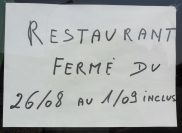 RESTAURANT
FERMÉ DU
26/08 AU 1/09 INCLUS